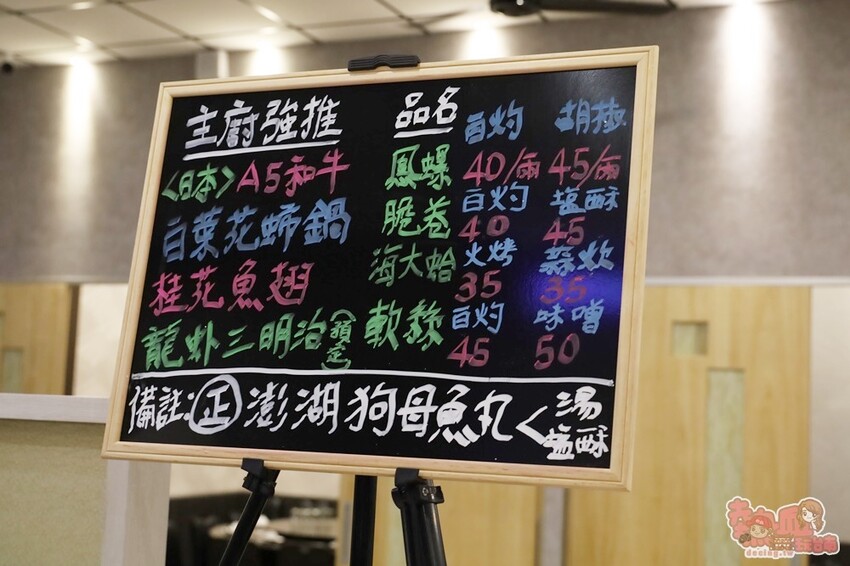 主廚強推
<日本>A5和牛
白葉花蚵鍋
桂花魚翅
龍虾三明治(預定)
品名 白灼 胡椒
鳳螺 40/兩 45/兩
白灼 塩酥
脆卷 40 45
海大蛤 火烤 蒜炊
35 35
軟絲 白灼 味噌
45 50
備註:正澎湖狗母魚丸<湯
塩酥
deeing.tw